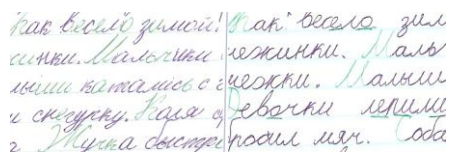 Как весело зимой!
синки. Мальчики
лыши катались с г
и снегурку. Коля
Жучка быстро
Как весело зим
нежинки. Маль
нежки. Малыши
Девочки лепили
росил мяч. Соба